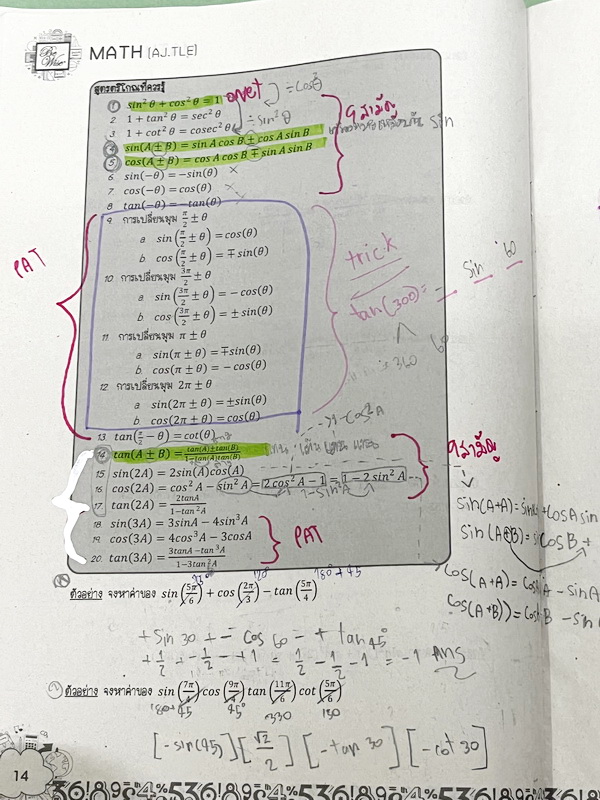 Be Wise
MATH [AJ.TLE]
สูตรตรีโกณที่ควรรู้
1 sin²θ + cos²θ = 1 onet
2 1 + tan²θ = sec²θ
3 1 + cot²θ = cosec²θ
4 sin(A ± B) = sin A cos B ± cos A sin B
5 cos(A ± B) = cos A cos B ∓ sin A sin B
9 สามัญ
6 sin(−θ) = −sin(θ) ×
7 cos(−θ) = cos(θ)
8 tan(−θ) = −tan(θ)
9 การเปลี่ยนมุม π/2 ± θ
a sin(π/2 ± θ) = cos(θ)
b. cos(π/2 ± θ) = ∓sin(θ)
10 การเปลี่ยนมุม 3π/2 ± θ
a sin(3π/2 ± θ) = −cos(θ)
b. cos(3π/2 ± θ) = ±sin(θ)
11 การเปลี่ยนมุม π ± θ
a sin(π ± θ) = ∓sin(θ)
b. cos(π ± θ) = −cos(θ)
12 การเปลี่ยนมุม 2π ± θ
a sin(2π ± θ) = ±sin(θ)
b cos(2π ± θ) = cos(θ)
PAT
trick
tan(300) =
sin 60
360
13 tan(π/2 − θ) = cot(θ)
14 tan(A ± B) = tan(A)±tan(B)/1−tan(A)tan(B)
15 sin(2A) = 2sin(A)cos(A)
16 cos(2A) = cos²A − sin²A = 2cos²A − 1 = 1 − 2sin²A
17. tan(2A) = 2tanA/1−tan²A
18 sin(3A) = 3sinA − 4sin³A
19. cos(3A) = 4cos³A − 3cosA
20. tan(3A) = 3tanA−tan³A/1−3tan²A
1-cos²A
1-sin²A
PAT
9 สามัญ
sin(A+A) = +cosA sin
sin(A+B) = cosB +
cos(A+A) = A - sinA
cos(A+B) = B - sin
ตัวอย่าง จงหาค่าของ sin(5π/6) + cos(2π/3) − tan(5π/4)
180+45
+ sin 30 + - cos 60 - + tan 45°
+ 1/2 + - 1/2 - +1 = 1/2 - 1/2 - 1 = -1 Ans
2 ตัวอย่าง จงหาค่าของ sin(7π/4)cos(9π/4)tan(11π/6)cot(5π/6)
180+45 45° 330 150
[-sin(45)] [√2/2] [-tan 30] [-cot 30]
14